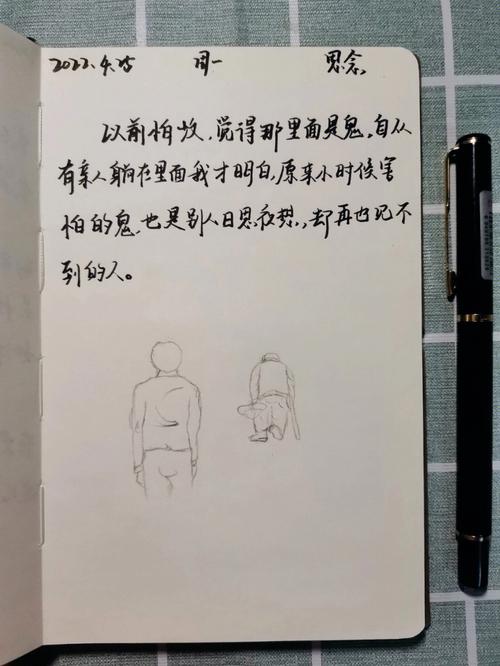 2022.4.25 周一 思念
以前怕坟,觉得那里面是鬼,自从
有亲人躺在里面我才明白,原来小时候害
怕的鬼,也是别人日思夜想,却再也见不
到的人。